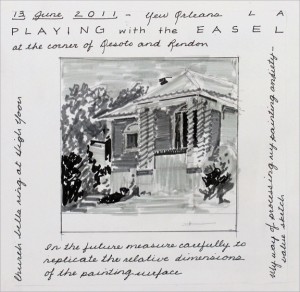 13 June 2011 - New Orleans LA
PLAYING with the EASEL
at the corner of Desoto and Rendon
church bells ring at high noon
My way of processing my painting anxiety-
value sketch
In the future measure carefully to
replicate the relative dimensions
of the painting surface